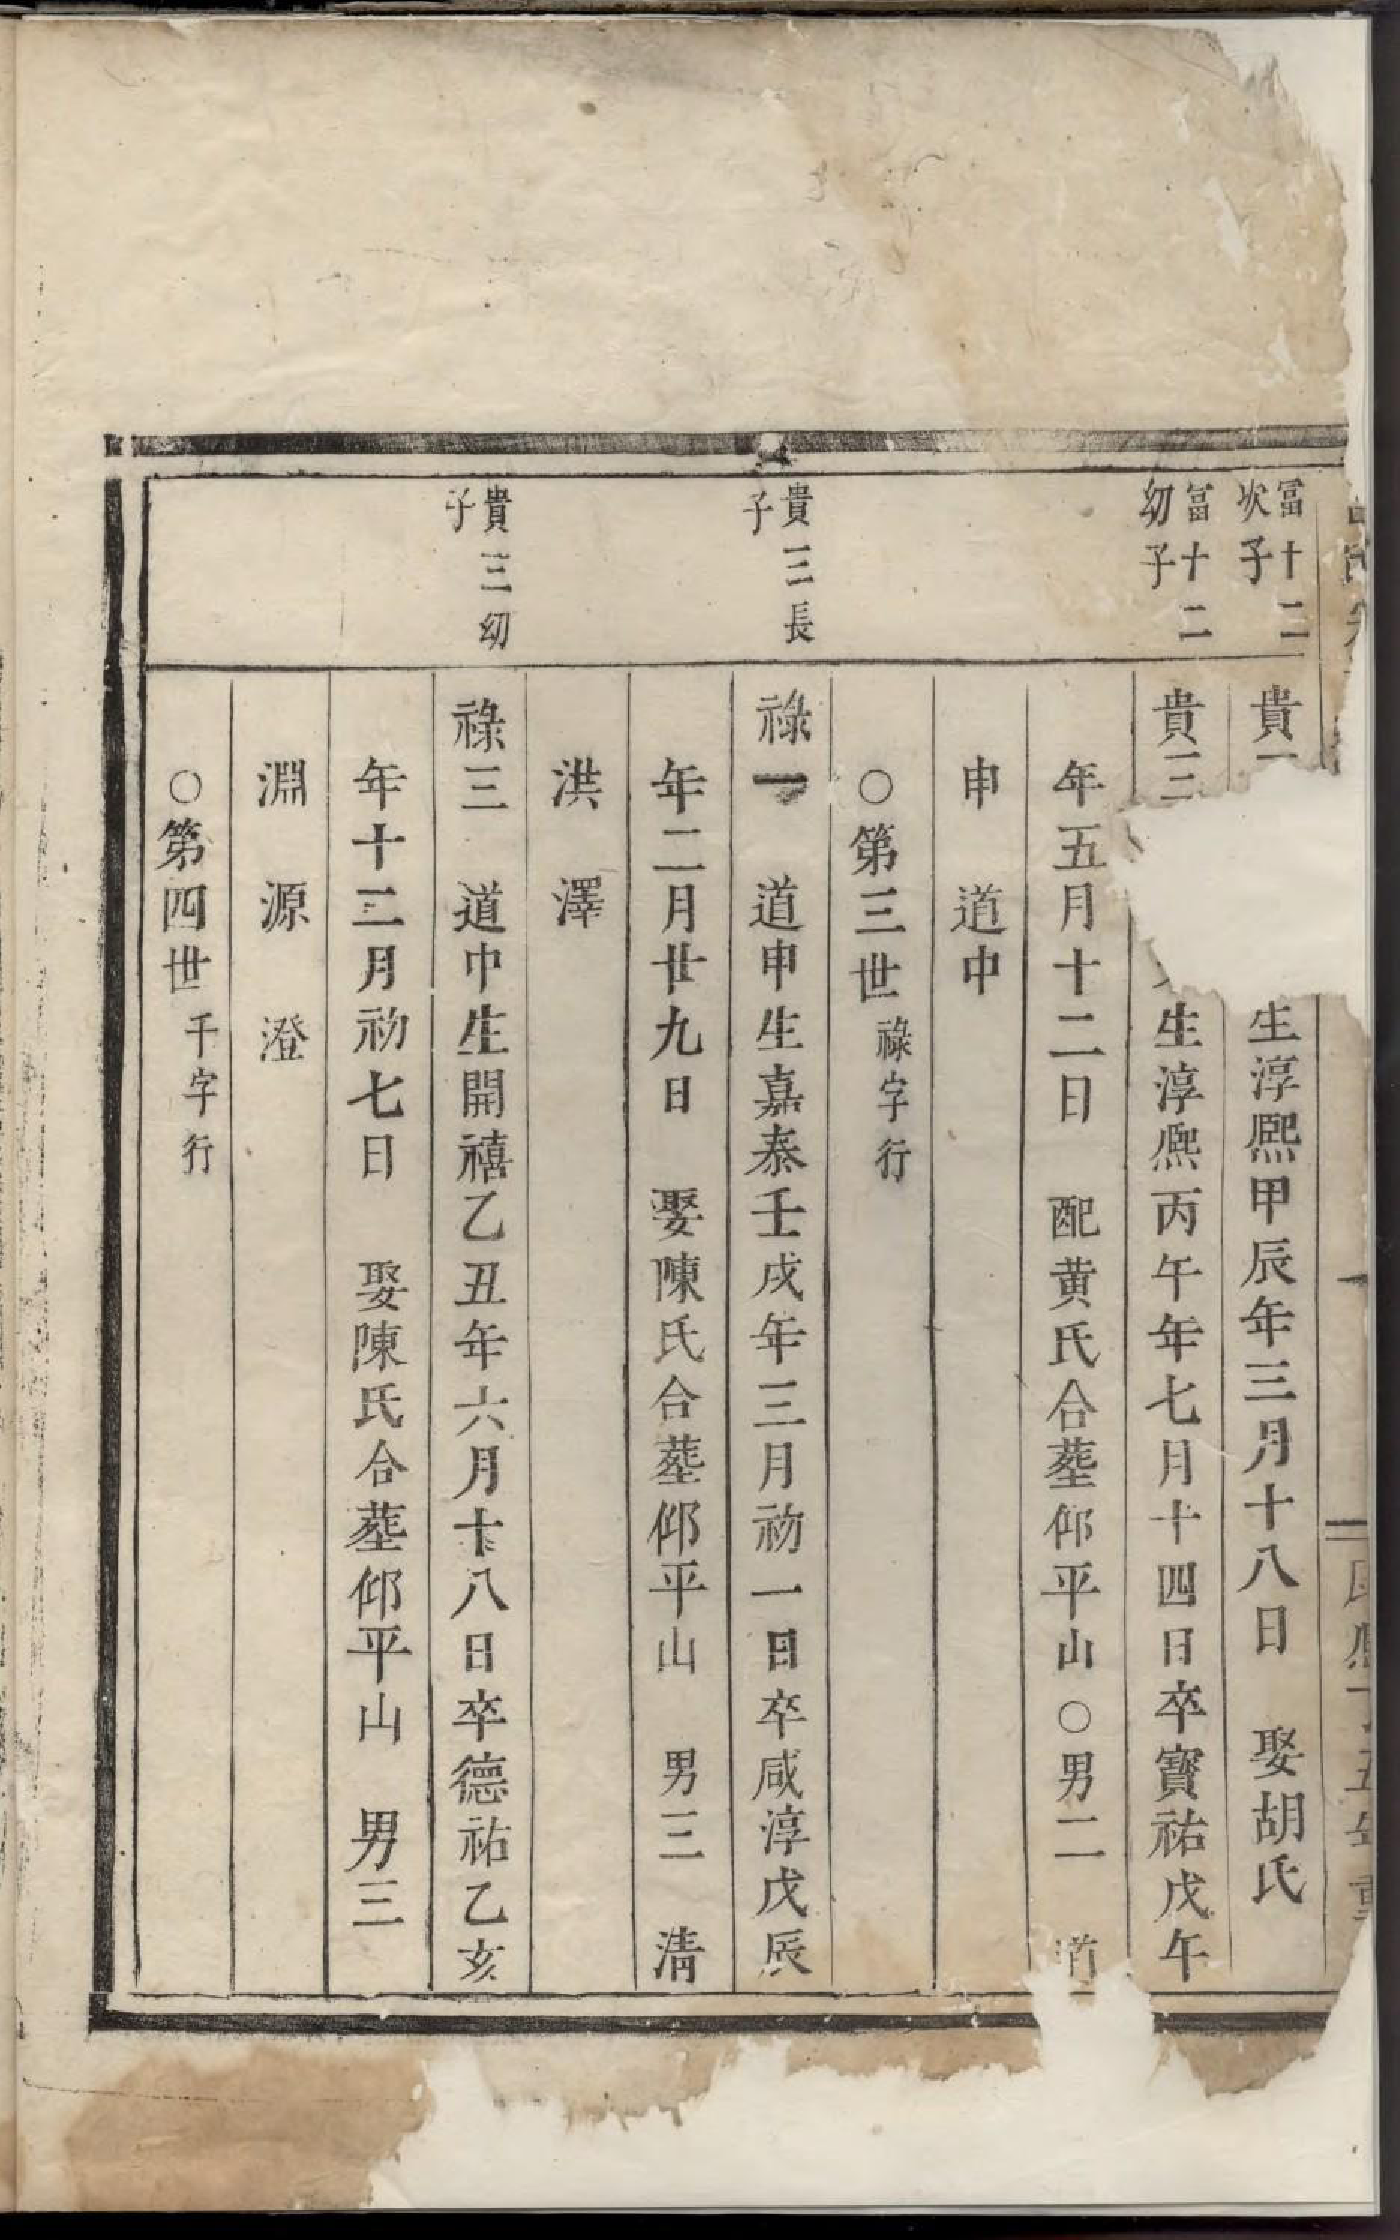 富十二
次子
貴
生淳熙甲辰年三月十八日 娶胡氏
富十二
幼子
貴三
生淳熙丙午年七月十四日卒寶祐戊午
年五月十二日 配黄氏合塟仰平山○男二 道
申 道中
○第三世祿字行
貴三長
子
祿一 道申生嘉泰壬戌年三月初一日卒咸淳戊辰
年二月廿九日 娶陳氏合塟仰平山 男三 清
洪 澤
貴三幼
子
祿三 道中生開禧乙丑年六月十八日卒德祐乙亥
年十二月初七日 娶陳氏合塟仰平山 男三
淵 源 澄
○第四世千字行